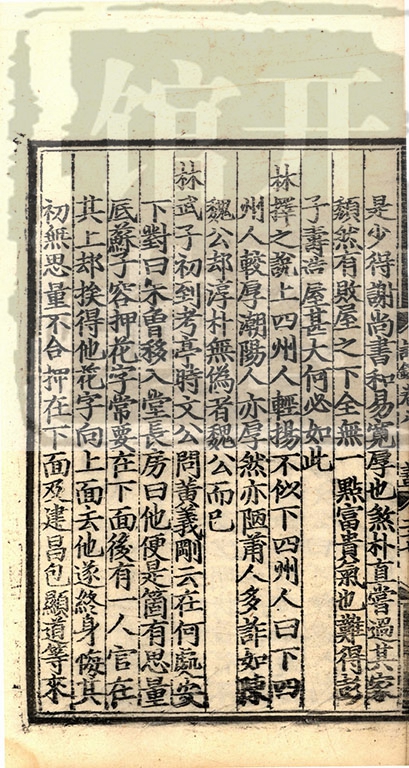 是少得謝尚書和易寬厚也煞朴直嘗過其家
頹然有敗屋之下全無一點富貴氣也難得彭
子壽造屋甚大何必如此
林擇之說上四州人輕揚不似下四州人曰下四
州人較厚潮陽人亦厚然亦陋莆人多詐如陳
魏公却淳朴無僞者魏公而已
林武子初到考亭時文公問黃義剛云在何處安
下對曰未曽移入堂長房曰他便是箇有思量
底蘇子容押花字常要在下面後有一人官在
其上却挨得他花字向上面去他遂終身悔其
初無思量不合押在下面及建昌包顯道等來